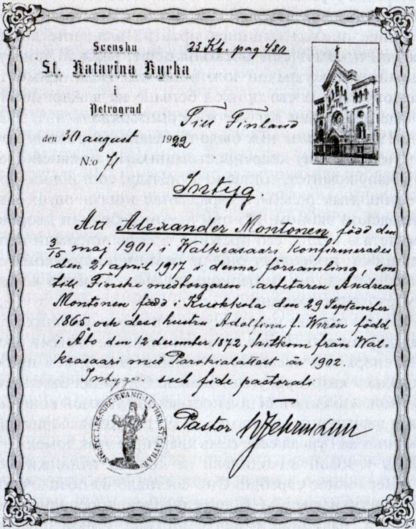 Svenska
St. Katarina Kyrka
i
Petrograd
den 30 august 1922
No 71
Till Finland
Intyg
Att Alexander Montonen född den
3/15 maj 1901 i Walkeasaari konfirmerad
den 21 april 1917 i denna församling, son
till Finske medborgaren arbetaren Andreas
Montonen född i Kuokkola den 29 September
1865 och dess hustru Adolfina f. Wirén född
i Åbo den 12 december 1872, hitkom från Wal-
keasaari med Parokialattest år 1902.
Intygar sub fide pastorali
Pastor